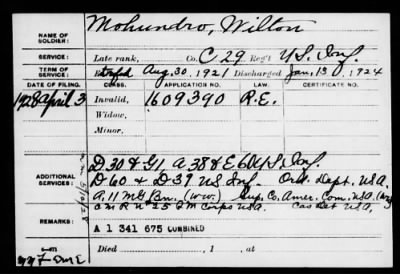 NAME OF SOLDIER: Mohundro, Wilton
SERVICE: Late rank, Co. C 29 Reg't U.S. Inf.
TERM OF SERVICE: Enlisted Aug. 30, 1921 Discharged Jan. 13, 1924
DATE OF FILING. CLASS. APPLICATION NO. LAW. CERTIFICATE NO.
1928 April 3 Invalid, 1609390 R.E.
Widow,
Minor,
D 30 & G 1 A 38 & E 60 U.S. Inf.
ADDITIONAL SERVICES: D 60 & D 39 US Inf. Ord. Dept. U.S.A.
A. 11 MG Bn. (WW.) Sup. Co. Amer. Com. U.S.A.
2 M Corps U.S.A. Cas Det U.S.A.
REMARKS: A 1 341 675 COMBINED
Died , 1 , at